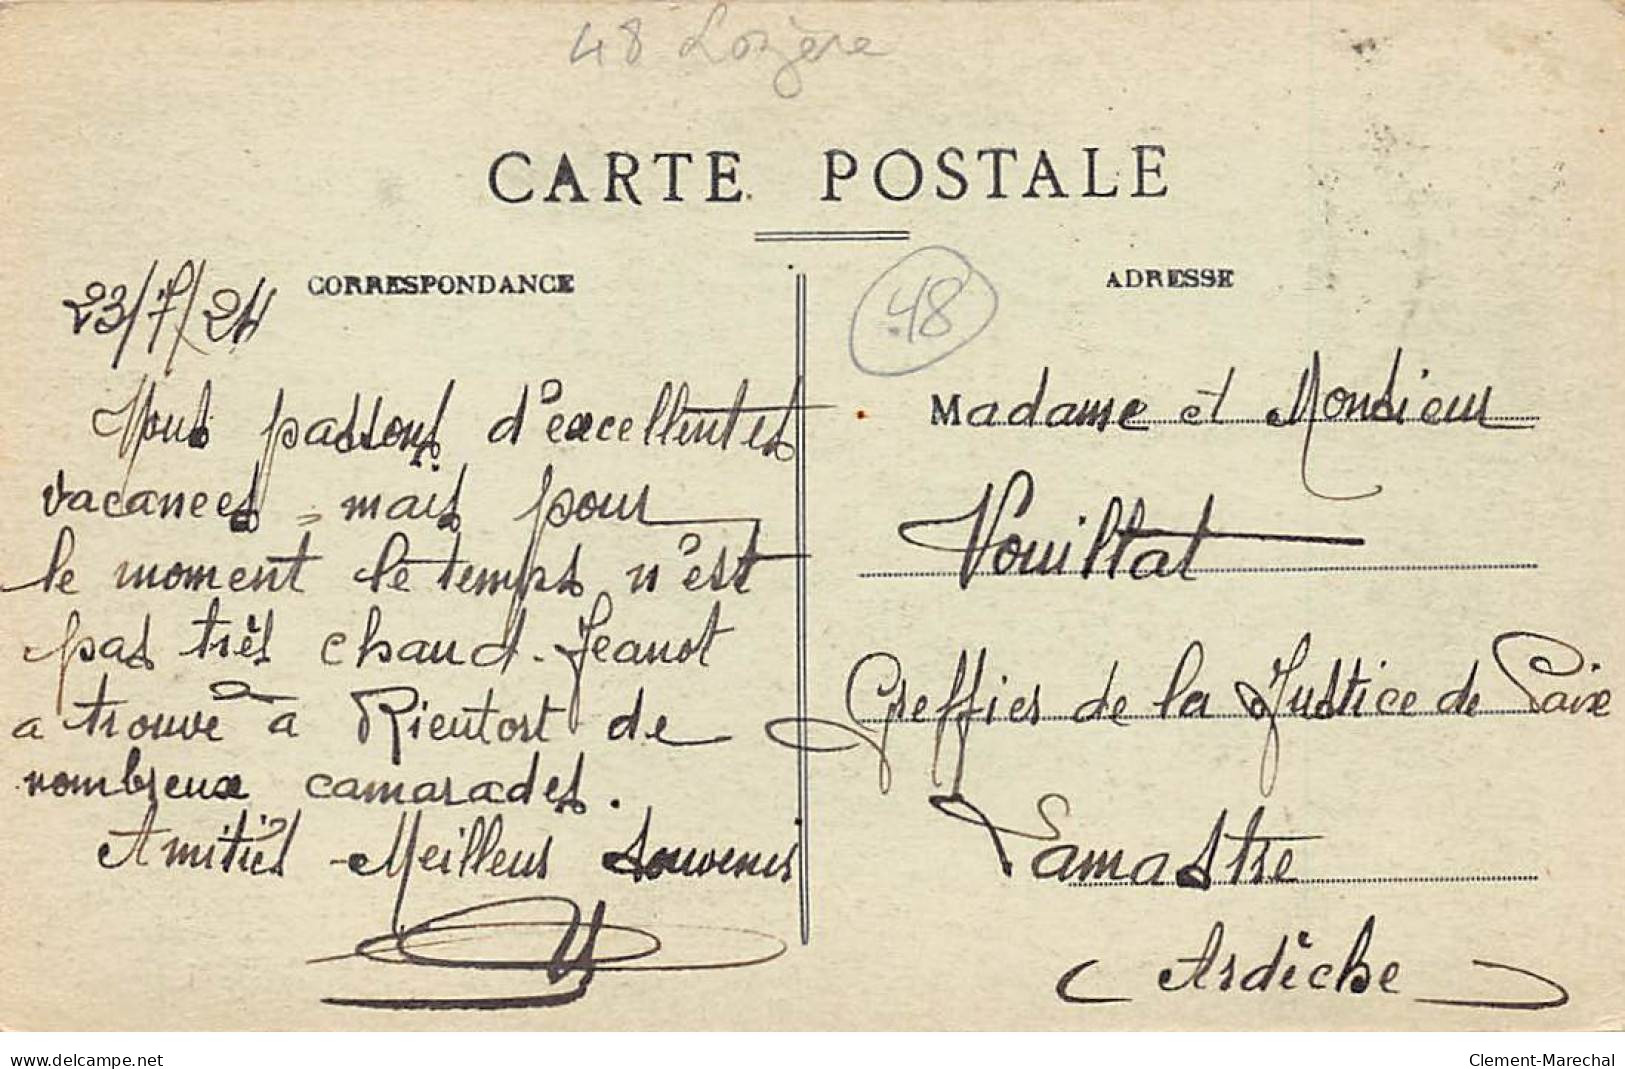 48 Lozère
CARTE POSTALE
CORRESPONDANCE
23/7/24
Nous passons d'excellentes
vacances, mais pour
le moment le temps n'est
pas très chaud. Jeanot
a trouvé à Rieutort de
nombreux camarades.
Amitiés Meilleurs Souvenirs
48
ADRESSE
Madame et Monsieur
Vouillat
Greffier de la Justice de Paix
Lamastre
(Ardèche)
www.delcampe.net
Clement-Marechal